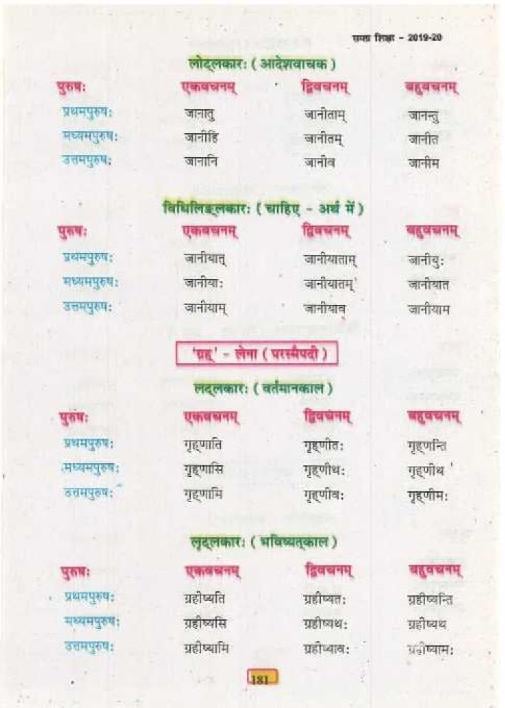 समग्र शिक्षा - 2019-20
लोट्लकारः ( आदेशवाचक )
पुरुषः एकवचनम् द्विवचनम् बहुवचनम्
प्रथमपुरुषः जानातु जानीताम् जानन्तु
मध्यमपुरुषः जानीहि जानीतम् जानीत
उत्तमपुरुषः जानानि जानीव जानीम
विधिलिङ्लकारः ( चाहिए - अर्थ में )
पुरुषः एकवचनम् द्विवचनम् बहुवचनम्
प्रथमपुरुषः जानीयात् जानीयाताम् जानीयुः
मध्यमपुरुषः जानीयाः जानीयातम् जानीयात
उत्तमपुरुषः जानीयाम् जानीयाव जानीयाम
'ग्रह्' - लेना ( परस्मैपदी )
लट्लकारः ( वर्तमानकाल )
पुरुषः एकवचनम् द्विवचनम् बहुवचनम्
प्रथमपुरुषः गृह्णाति गृह्णीतः गृह्णन्ति
मध्यमपुरुषः गृह्णासि गृह्णीथः गृह्णीथ
उत्तमपुरुषः गृह्णामि गृह्णीवः गृह्णीमः
लृट्लकारः ( भविष्यत्काल )
पुरुषः एकवचनम् द्विवचनम् बहुवचनम्
प्रथमपुरुषः ग्रहीष्यति ग्रहीष्यतः ग्रहीष्यन्ति
मध्यमपुरुषः ग्रहीष्यसि ग्रहीष्यथः ग्रहीष्यथ
उत्तमपुरुषः ग्रहीष्यामि ग्रहीष्यावः ग्रहीष्यामः
181